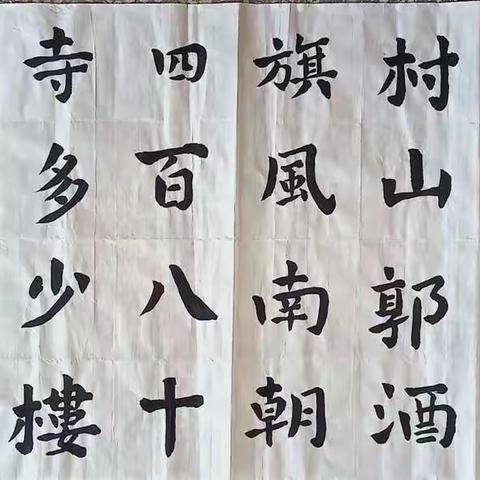 村山郭酒
旗風南朝
四百八十
寺多少樓